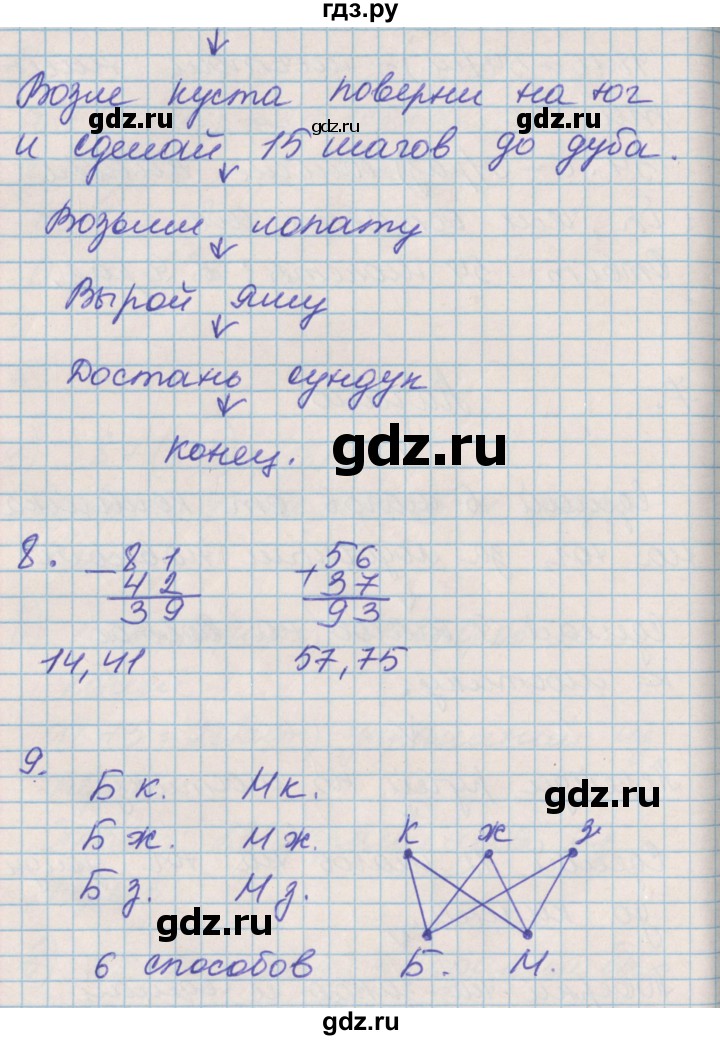 гдз.ру
Возле куста поверни на юг
gdz.ru
gdz.ru
gdz.ru
и сделай 15 шагов до дуба.
Возьми лопату
Вырой яму
Достань сундук
конец.
gdz.ru
8. - 81 + 56
42 37
39 93
14, 41 57, 75
9.
Б к. М к.
gdz.ru
Б ж. М ж. к ж з
Б з. М з.
gdz.ru
6 способов Б. М.
gdz.ru